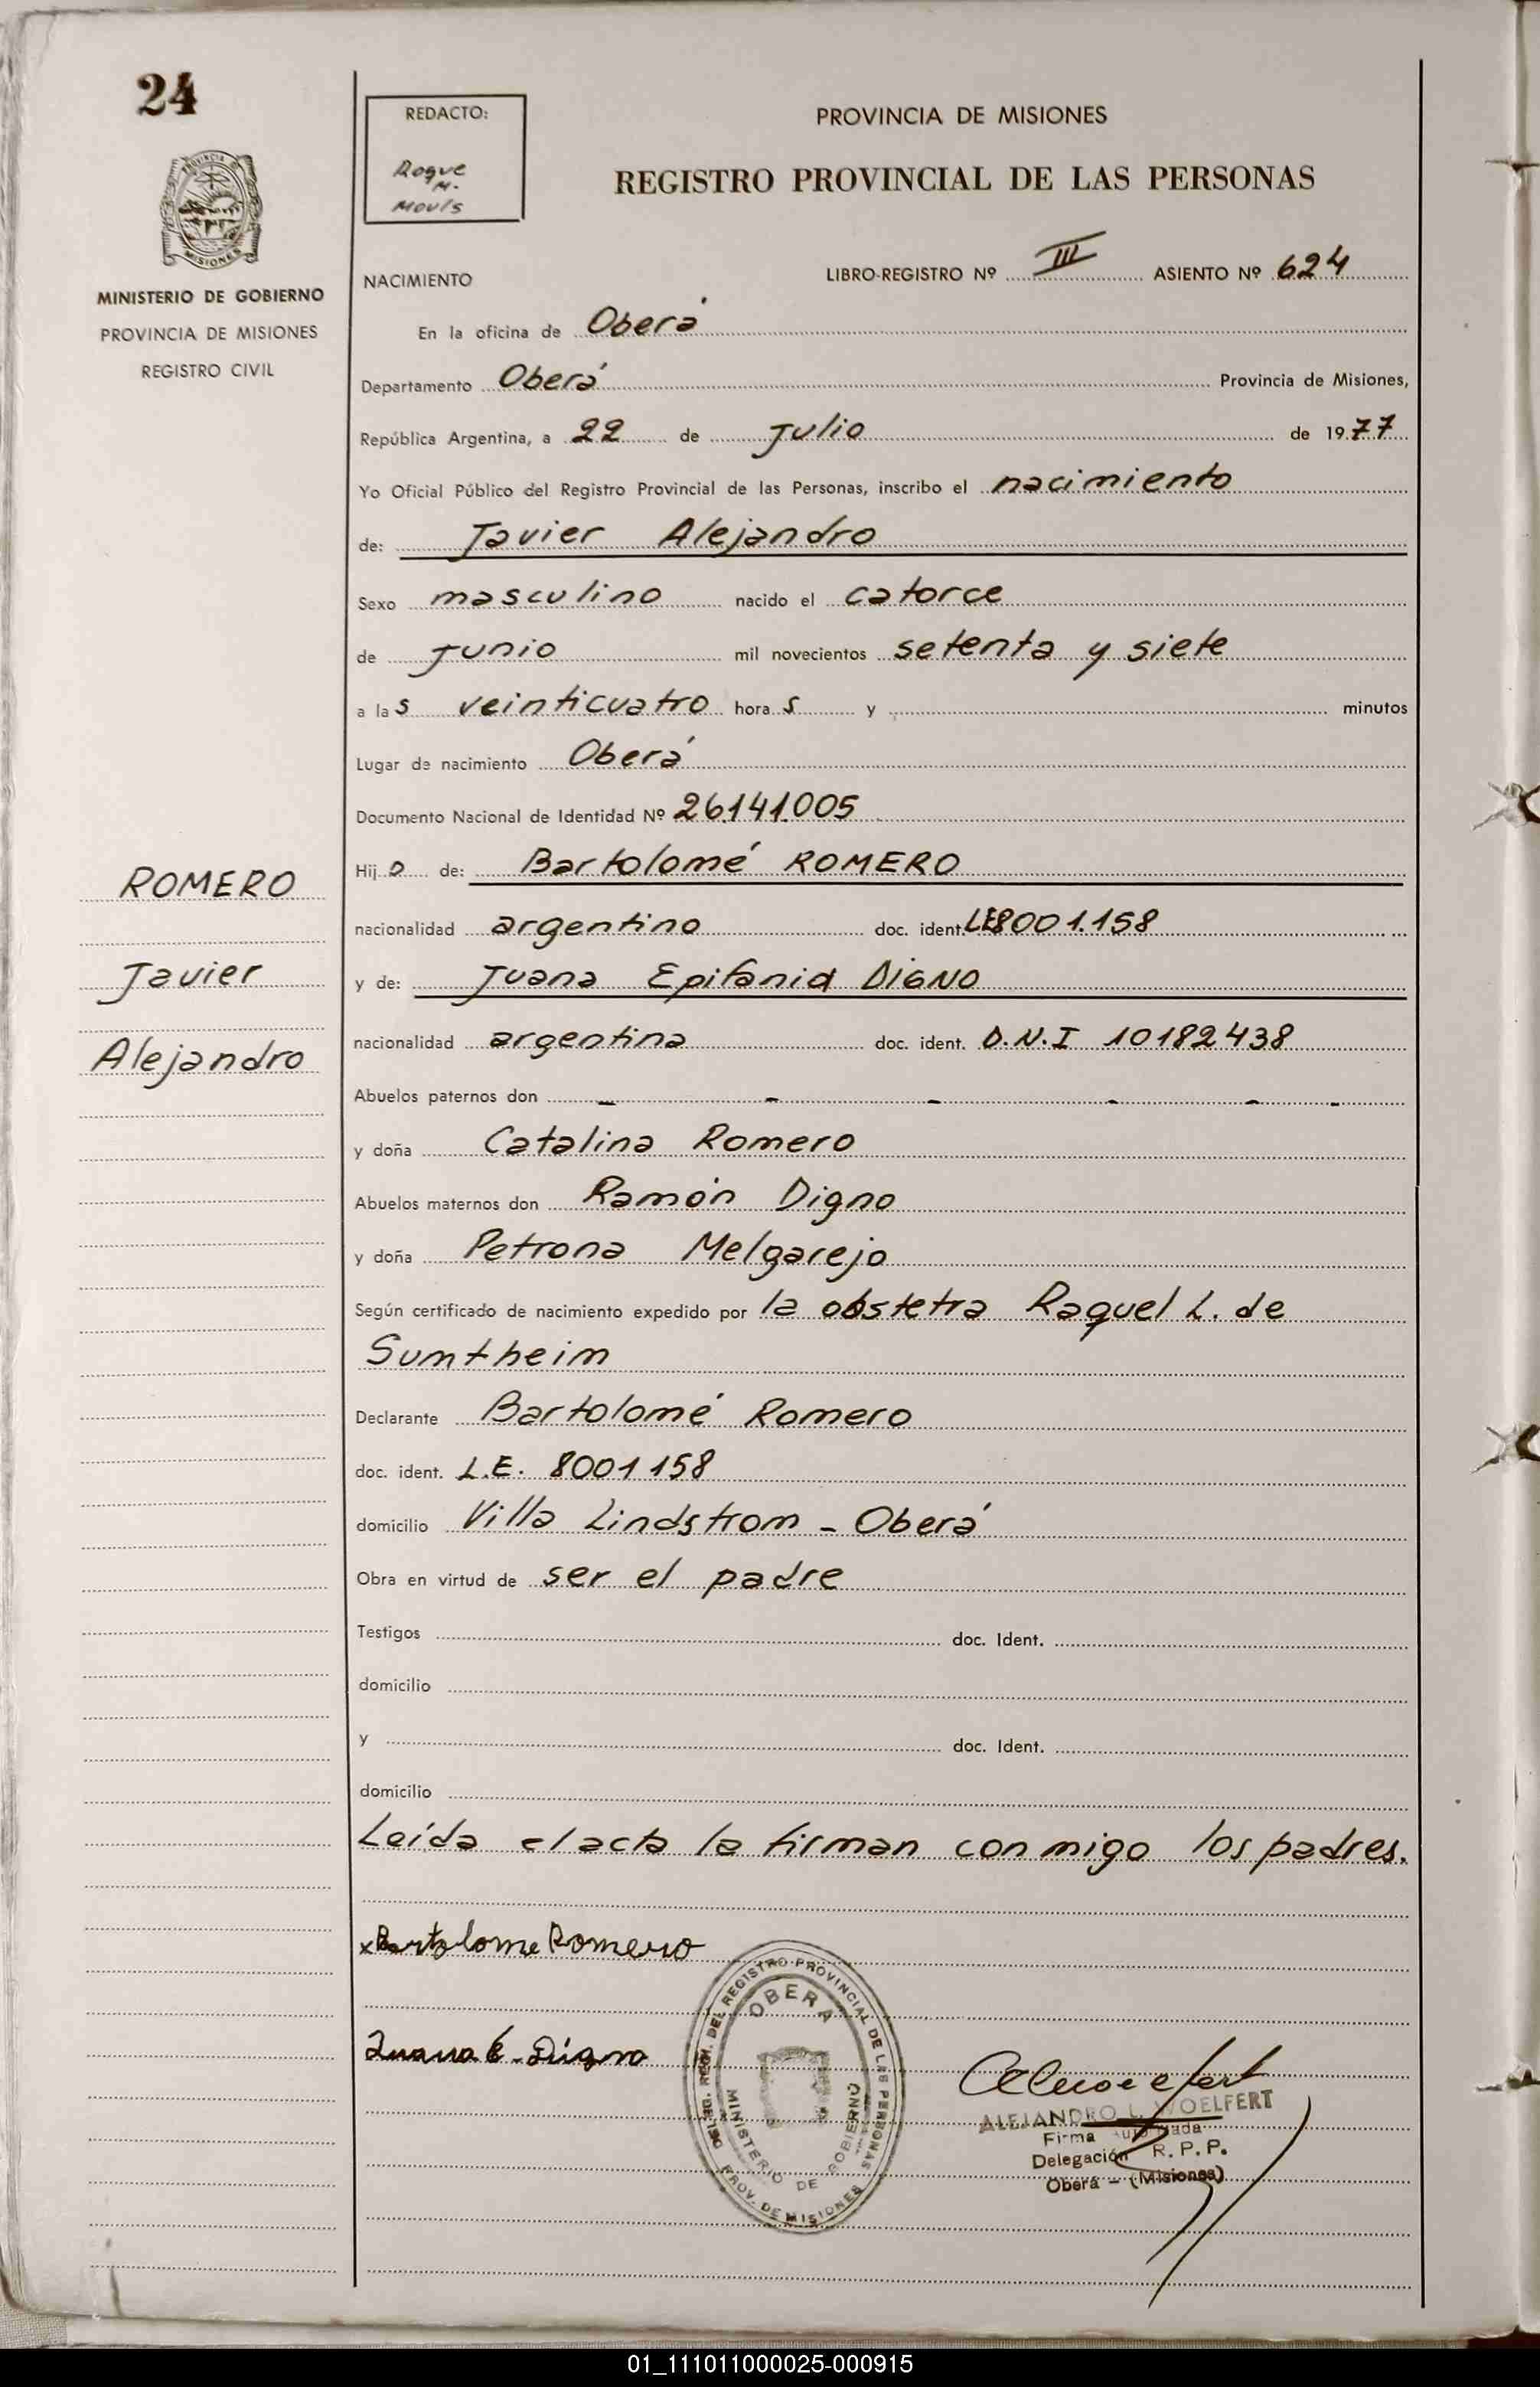 24
REDACTO:
Roque
M.
Mouls
PROVINCIA DE MISIONES
REGISTRO PROVINCIAL DE LAS PERSONAS
PROVINCIA DE
MISIONES
MINISTERIO DE GOBIERNO
PROVINCIA DE MISIONES
REGISTRO CIVIL
NACIMIENTO
LIBRO-REGISTRO Nº III ASIENTO Nº 624
En la oficina de Oberá
Departamento Oberá Provincia de Misiones,
República Argentina, a 22 de Julio de 1977
Yo Oficial Público del Registro Provincial de las Personas, inscribo el nacimiento
de: Javier Alejandro
Sexo masculino nacido el catorce
de Junio mil novecientos setenta y siete
a las veinticuatro horas y minutos
Lugar de nacimiento Oberá
Documento Nacional de Identidad Nº 26.141.005
Hijo de: Bartolomé ROMERO
nacionalidad argentino doc. ident. LE8001.158
y de: Juana Epifania DIGNO
nacionalidad argentina doc. ident. D.N.I 10182438
Abuelos paternos don - - - - - -
y doña Catalina Romero
Abuelos maternos don Ramón Digno
y doña Petrona Melgarejo
Según certificado de nacimiento expedido por la obstetra Raquel L. de
Sumtheim
Declarante Bartolomé Romero
doc. ident. L.E. 8001158
domicilio Villa Lindstrom - Oberá
Obra en virtud de ser el padre
Testigos doc. Ident.
domicilio
y doc. Ident.
domicilio
Leída el acta la firman conmigo los padres.
ROMERO
Javier
Alejandro
x Bartolome Romero
Juana E. Digno
DEL REGISTRO PROVINCIAL DE LAS PERSONAS
OBERA
MINISTERIO DE GOBIERNO
PROV. DE MISIONES
ALEJANDRO L. WOELFERT
Firma Autorizada
Delegación R. P. P.
Oberá - (Misiones)
01_111011000025-000915